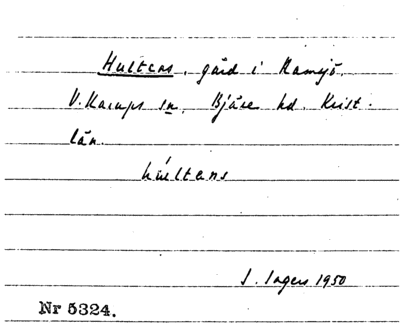 Hultens, gård i Ramsjö.
V. Karups sn. Bjäre hd. Krist.
län.
húltens
I. Ingers 1950
Nr 5324.